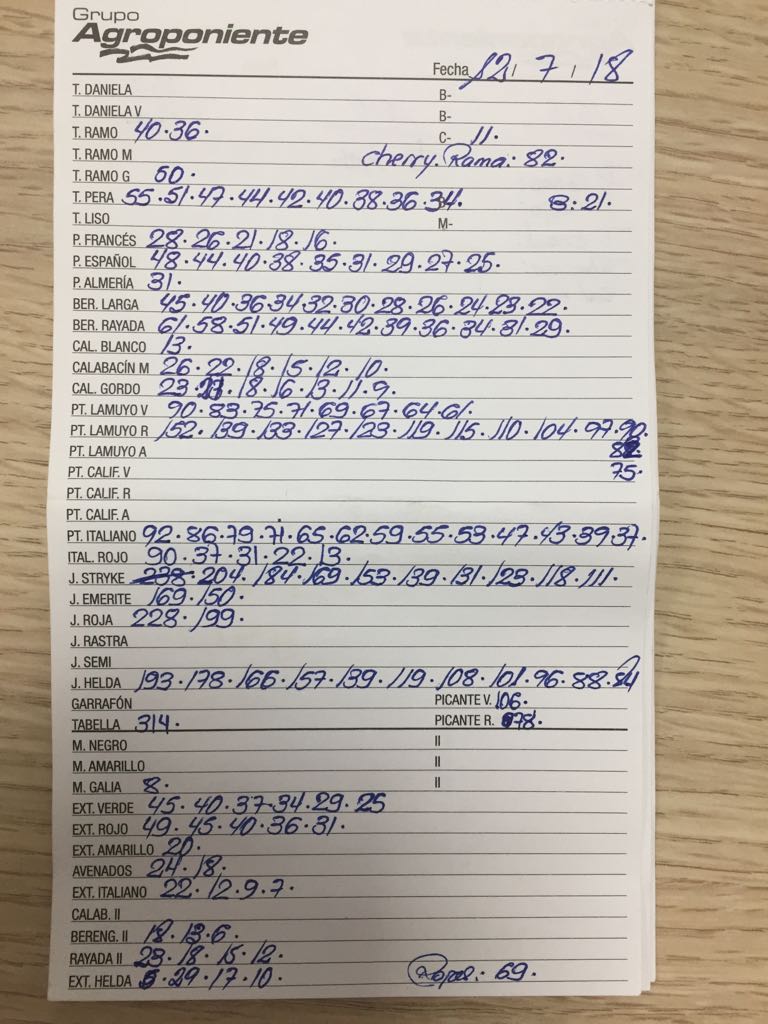 Grupo
Agroponiente
Fecha 12 / 7 / 18
T. DANIELA B-
T. DANIELA V B-
T. RAMO 40·36· C- 11·
T. RAMO M cherry. Rama: 82·
T. RAMO G 50·
T. PERA 55·51·47·44·42·40·38·36·34· B: 21·
T. LISO M-
P. FRANCÉS 28·26·21·18·16·
P. ESPAÑOL 48·44·40·38·35·31·29·27·25·
P. ALMERÍA 31·
BER. LARGA 45·40·36·34·32·30·28·26·24·23·22·
BER. RAYADA 61·58·51·49·44·42·39·36·34·31·29·
CAL. BLANCO 13·
CALABACÍN M 26·22·18·15·12·10·
CAL. GORDO 23· ·18·16·13·11·9·
PT. LAMUYO V 90·83·75·71·69·67·64·61·
PT. LAMUYO R 152·139·133·127·123·119·115·110·104·97·90·
PT. LAMUYO A 82·
PT. CALIF. V 75·
PT. CALIF. R
PT. CALIF. A
PT. ITALIANO 92·86·79·71·65·62·59·55·53·47·43·39·37·
ITAL. ROJO 90·37·31·22·13·
J. STRYKE 238·204·184·169·153·139·131·123·118·111·
J. EMERITE 169·150·
J. ROJA 228·199·
J. RASTRA
J. SEMI
J. HELDA 193·178·166·157·139·119·108·101·96·88·84
GARRAFÓN PICANTE V. 106·
TABELLA 314· PICANTE R. 78·
M. NEGRO II
M. AMARILLO II
M. GALIA 8· II
EXT. VERDE 45·40·37·34·29·25
EXT. ROJO 49·45·40·36·31·
EXT. AMARILLO 20·
AVENADOS 24·18·
EXT. ITALIANO 22·12·9·7·
CALAB. II
BERENG. II 18·13·6·
RAYADA II 23·18·15·12·
EXT. HELDA ·29·17·10· 69·